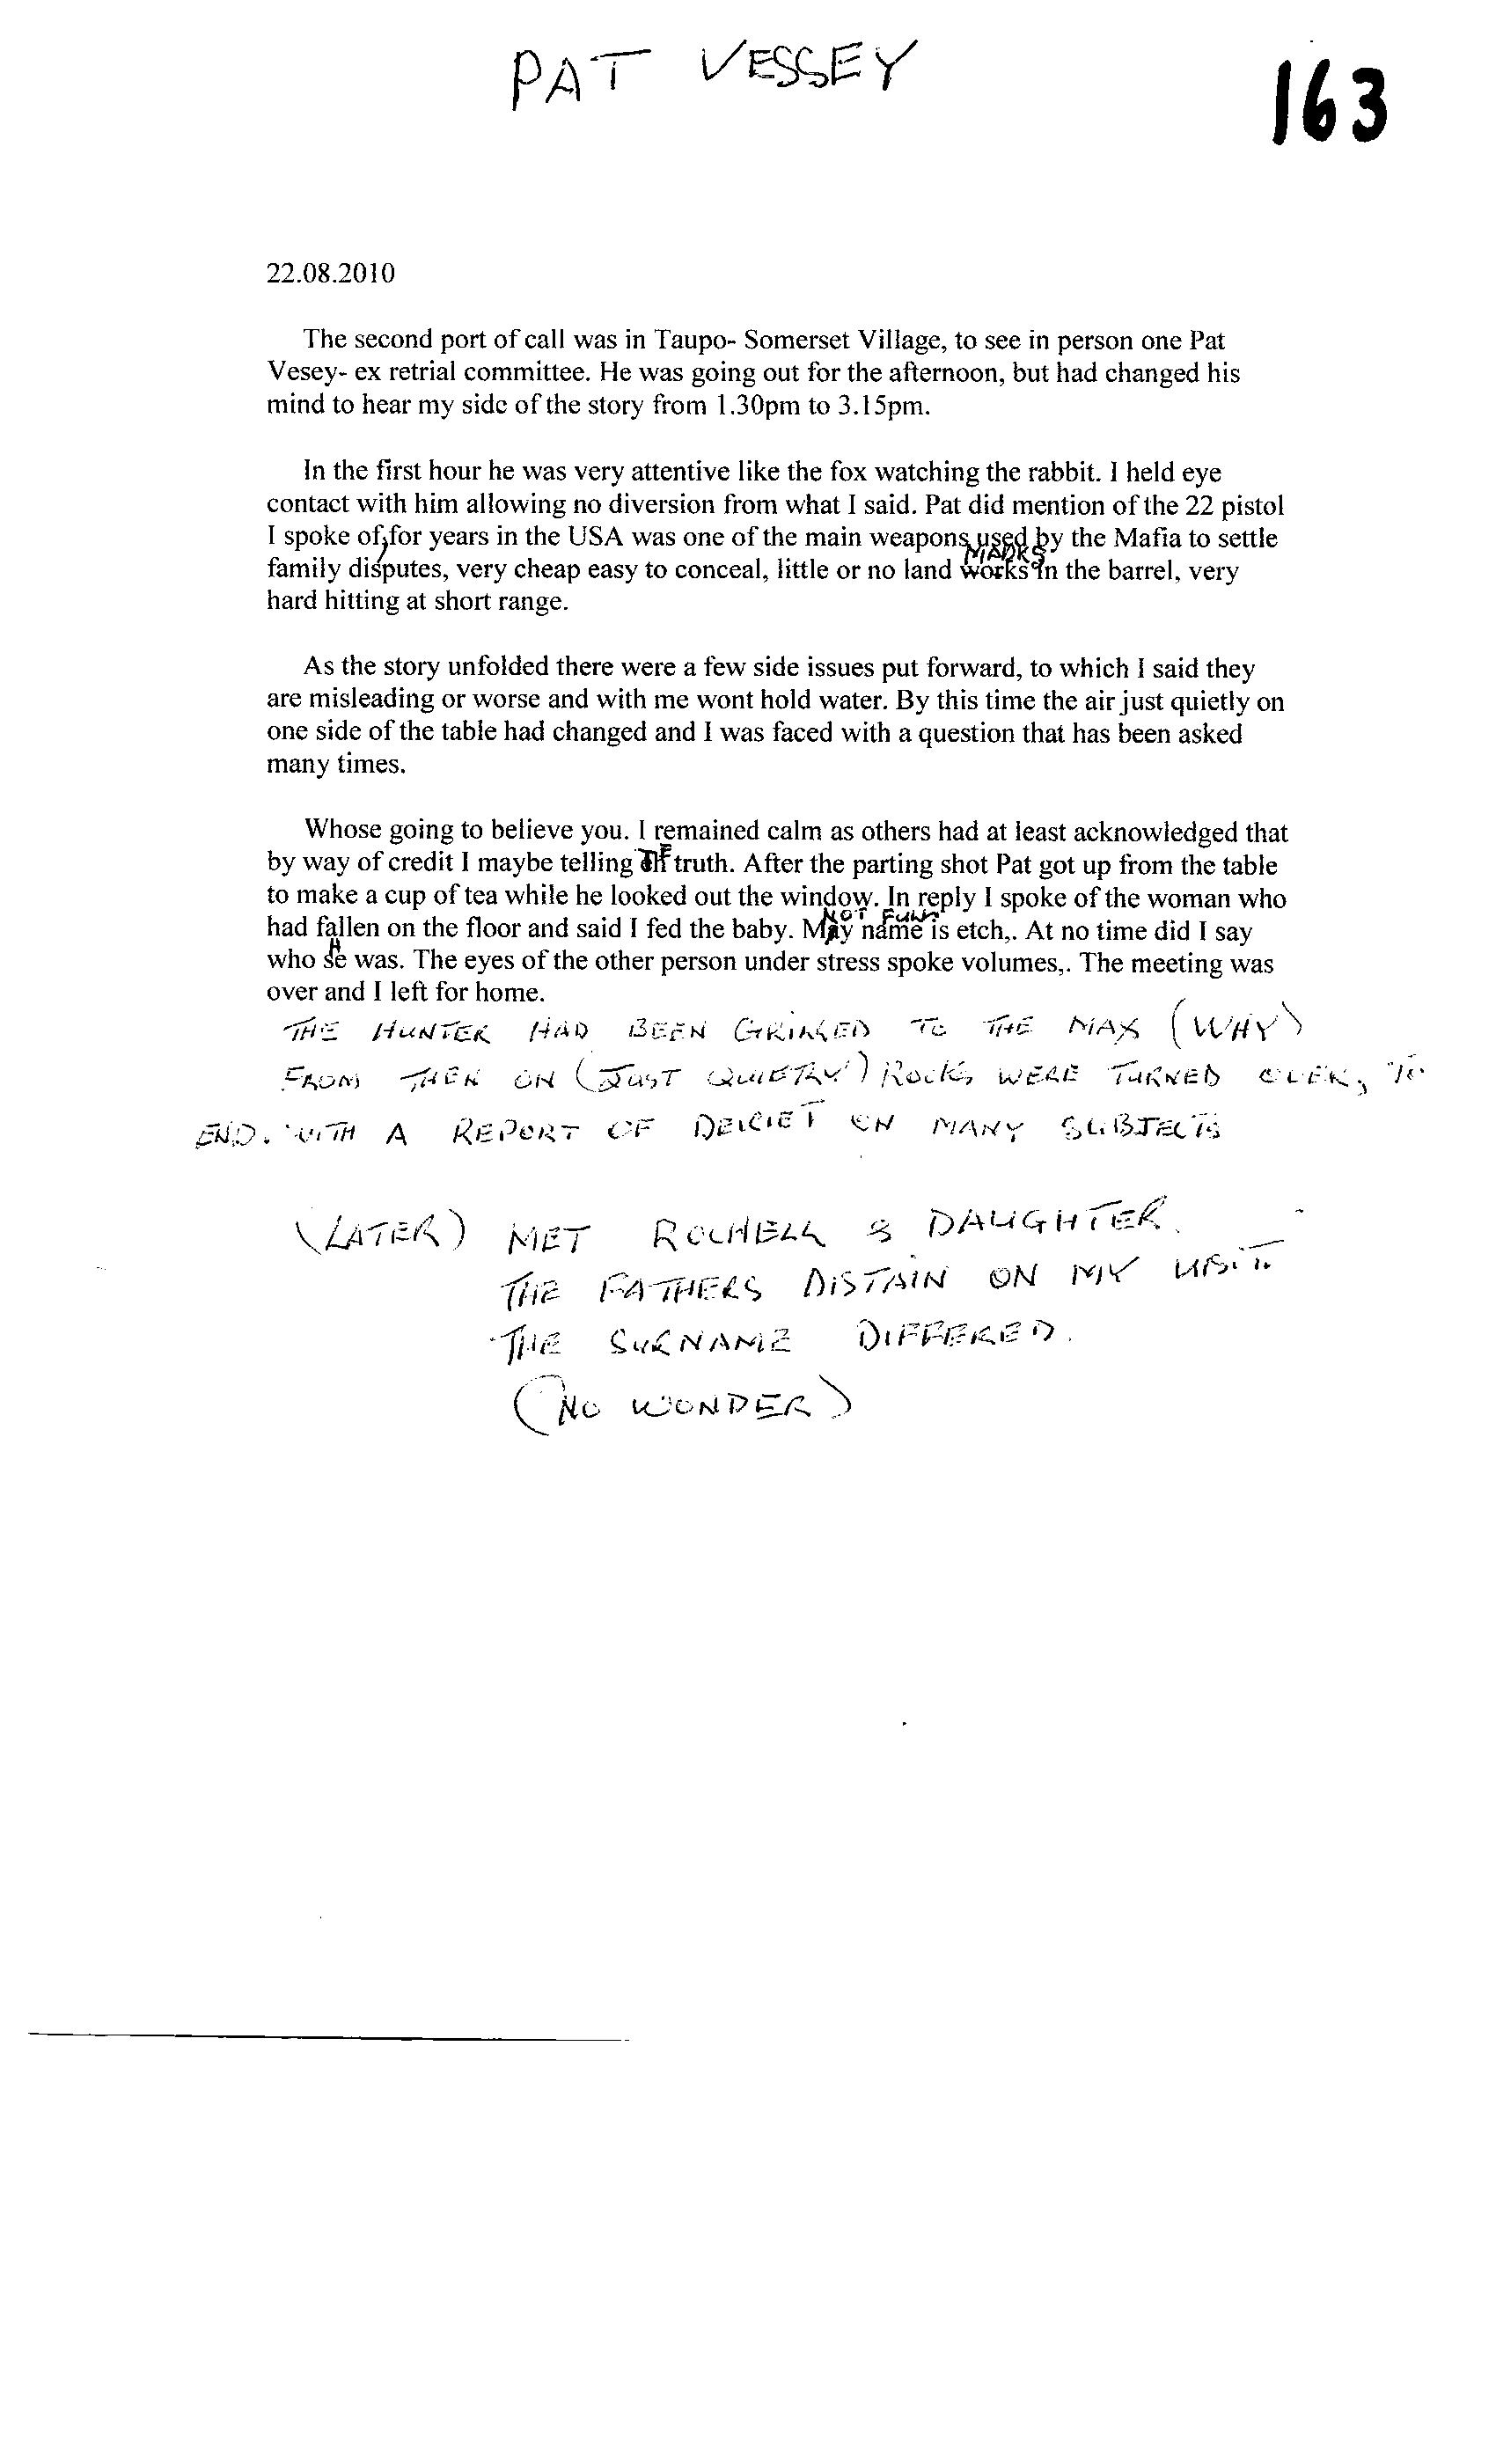 PAT VESSEY
163
22.08.2010
The second port of call was in Taupo- Somerset Village, to see in person one Pat
Vesey- ex retrial committee. He was going out for the afternoon, but had changed his
mind to hear my side of the story from 1.30pm to 3.15pm.
In the first hour he was very attentive like the fox watching the rabbit. I held eye
contact with him allowing no diversion from what I said. Pat did mention of the 22 pistol
I spoke of,for years in the USA was one of the main weapons used by the Mafia to settle
MARKS
family disputes, very cheap easy to conceal, little or no land works in the barrel, very
hard hitting at short range.
As the story unfolded there were a few side issues put forward, to which I said they
are misleading or worse and with me wont hold water. By this time the air just quietly on
one side of the table had changed and I was faced with a question that has been asked
many times.
Whose going to believe you. I remained calm as others had at least acknowledged that
by way of credit I maybe telling THE truth. After the parting shot Pat got up from the table
to make a cup of tea while he looked out the window. In reply I spoke of the woman who
NOT FULL
had fallen on the floor and said I fed the baby. My name is etch,. At no time did I say
who sHe was. The eyes of the other person under stress spoke volumes,. The meeting was
over and I left for home.
THE HUNTER HAD BEEN TO THE MAX (WHY)
FROM THEN ON (JUST QUIETLY) ROCKS WERE TURNED OVER, TO
END. WITH A REPORT OF DEICIET ON MANY SUBJECTS
(LATER) MET ROCHELL & DAUGHTER.
THE FATHERS DISTAIN ON MY VISIT
THE SURNAME DIFFERED.
(NO WONDER)